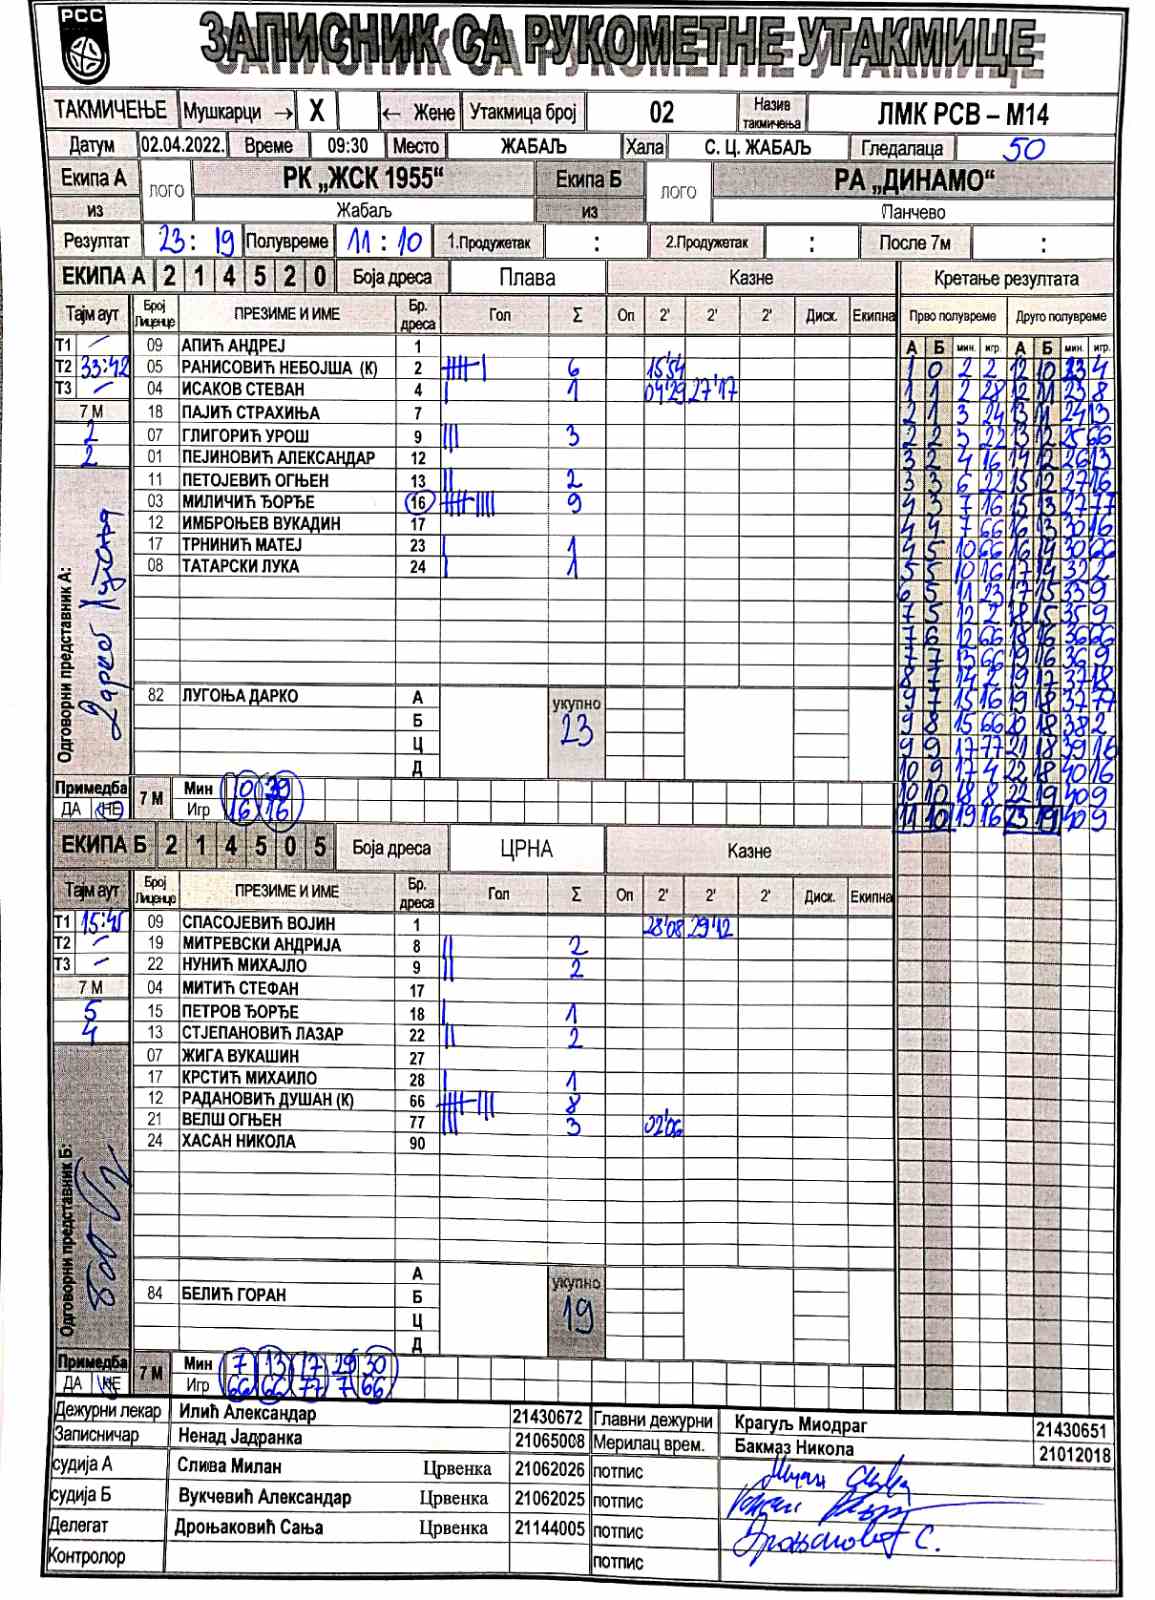 РСС
ЗАПИСНИК СА РУКОМЕТНЕ УТАКМИЦЕ
ТАКМИЧЕЊЕ Мушкарци → X ← Жене Утакмица број 02 Назив такмичења ЛМК РСВ – М14
Датум 02.04.2022. Време 09:30 Место ЖАБАЉ Хала С. Ц. ЖАБАЉ Гледалаца 50
Екипа А ЛОГО РК „ЖСК 1955“ Екипа Б ЛОГО РА „ДИНАМО“
из Жабаљ из Панчево
Резултат 23 : 19 Полувреме 11 : 10 1.Продужетак : 2.Продужетак : После 7м :
ЕКИПА А 2 1 4 5 2 0 Боја дреса Плава Казне Кретање резултата
Тајм аут Број Лиценце ПРЕЗИМЕ И ИМЕ Бр. дреса Гол Σ Оп 2' 2' 2' Диск. Екипна Прво полувреме Друго полувреме
А Б мин. игр. А Б мин. игр.
Т1 – 09 АПИЋ АНДРЕЈ 1
Т2 33:42 05 РАНИСОВИЋ НЕБОЈША (К) 2 6 15'54
Т3 – 04 ИСАКОВ СТЕВАН 4 1 04'29 27'17
7 М 18 ПАЈИЋ СТРАХИЊА 7
2 07 ГЛИГОРИЋ УРОШ 9 3
2 01 ПЕЈИНОВИЋ АЛЕКСАНДАР 12
11 ПЕТОЈЕВИЋ ОГЊЕН 13 2
03 МИЛИЧИЋ ЂОРЂЕ 16 9
12 ИМБРОЊЕВ ВУКАДИН 17
17 ТРНИНИЋ МАТЕЈ 23 1
08 ТАТАРСКИ ЛУКА 24 1
1 0 2 2 12 10 23 4
1 1 2 28 12 11 23 8
2 1 3 24 13 11 24 13
2 2 5 22 13 12 25 66
3 2 4 16 14 12 26 13
3 3 6 22 15 12 27 16
4 3 7 16 15 13 27 77
4 4 7 66 16 13 30 16
4 5 10 66 16 14 30 66
5 5 10 16 17 14 32 2
6 5 11 23 17 15 33 9
7 5 12 2 18 15 35 9
7 6 12 66 18 16 36 66
7 7 13 66 19 16 36 9
8 7 14 2 19 17 37 18
9 7 15 16 19 18 37 77
9 8 15 66 20 18 38 2
9 9 17 77 21 18 39 16
10 9 17 4 22 18 40 16
10 10 18 8 22 19 40 9
11 10 19 16 23 19 40 9
Одговорни представник А:
82 ЛУГОЊА ДАРКО А укупно 23
Б
Ц
Д
Примедба ДА НЕ 7 М Мин 10 39
Игр 16 16
ЕКИПА Б 2 1 4 5 0 5 Боја дреса ЦРНА Казне
Тајм аут Број Лиценце ПРЕЗИМЕ И ИМЕ Бр. дреса Гол Σ Оп 2' 2' 2' Диск. Екипна
Т1 15:45 09 СПАСОЈЕВИЋ ВОЈИН 1 28'08 29'12
Т2 – 19 МИТРЕВСКИ АНДРИЈА 8 2
Т3 – 22 НУНИЋ МИХАЈЛО 9 2
7 М 04 МИТИЋ СТЕФАН 17
5 15 ПЕТРОВ ЂОРЂЕ 18 1
4 13 СТЈЕПАНОВИЋ ЛАЗАР 22 2
07 ЖИГА ВУКАШИН 27
17 КРСТИЋ МИХАИЛО 28 1
12 РАДАНОВИЋ ДУШАН (К) 66 8
21 ВЕЛШ ОГЊЕН 77 3 02'06
24 ХАСАН НИКОЛА 90
Одговорни представник Б:
А укупно 19
84 БЕЛИЋ ГОРАН Б
Ц
Д
Примедба ДА НЕ 7 М Мин 7 13 17 29 30
Игр 66 66 77 7 66
Дежурни лекар Илић Александар 21430672 Главни дежурни Крагуљ Миодраг 21430651
Записничар Ненад Јадранка 21065008 Мерилац врем. Бакмаз Никола 21012018
судија А Слива Милан Црвенка 21062026 потпис
судија Б Вукчевић Александар Црвенка 21062025 потпис
Делегат Дроњаковић Сања Црвенка 21144005 потпис
Контролор потпис